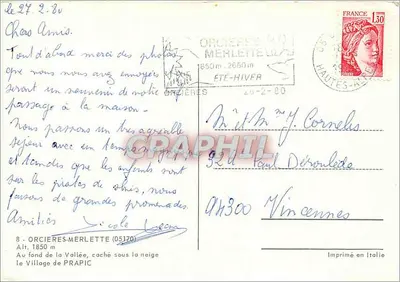 le 27.2.80
Chers Amis.
Tout d'abord merci des photos
que vous nous avez envoyées
seront un souvenir de notre
passage à la maison.
Nous passons un très agréable
séjour avec un temps magnifique
et tandis que les enfants sont
sur les pistes de skis, nous
faisons de grandes promenades
Amitiés
8 - ORCIERES-MERLETTE (05170)
Alt. 1850 m
Au fond de la Vallée, caché sous la neige
le Village de PRAPIC
ORCIERES
MERLETTE
1850 m. 2650 m
ÉTÉ-HIVER
ORCIERES
28-2-80
FRANCE
1,30
HAUTES-ALPES
CPAPHIL
Mr et Mme Y Cornelis
32 Paul Déroulède
94300 Vincennes
Imprimé en Italie